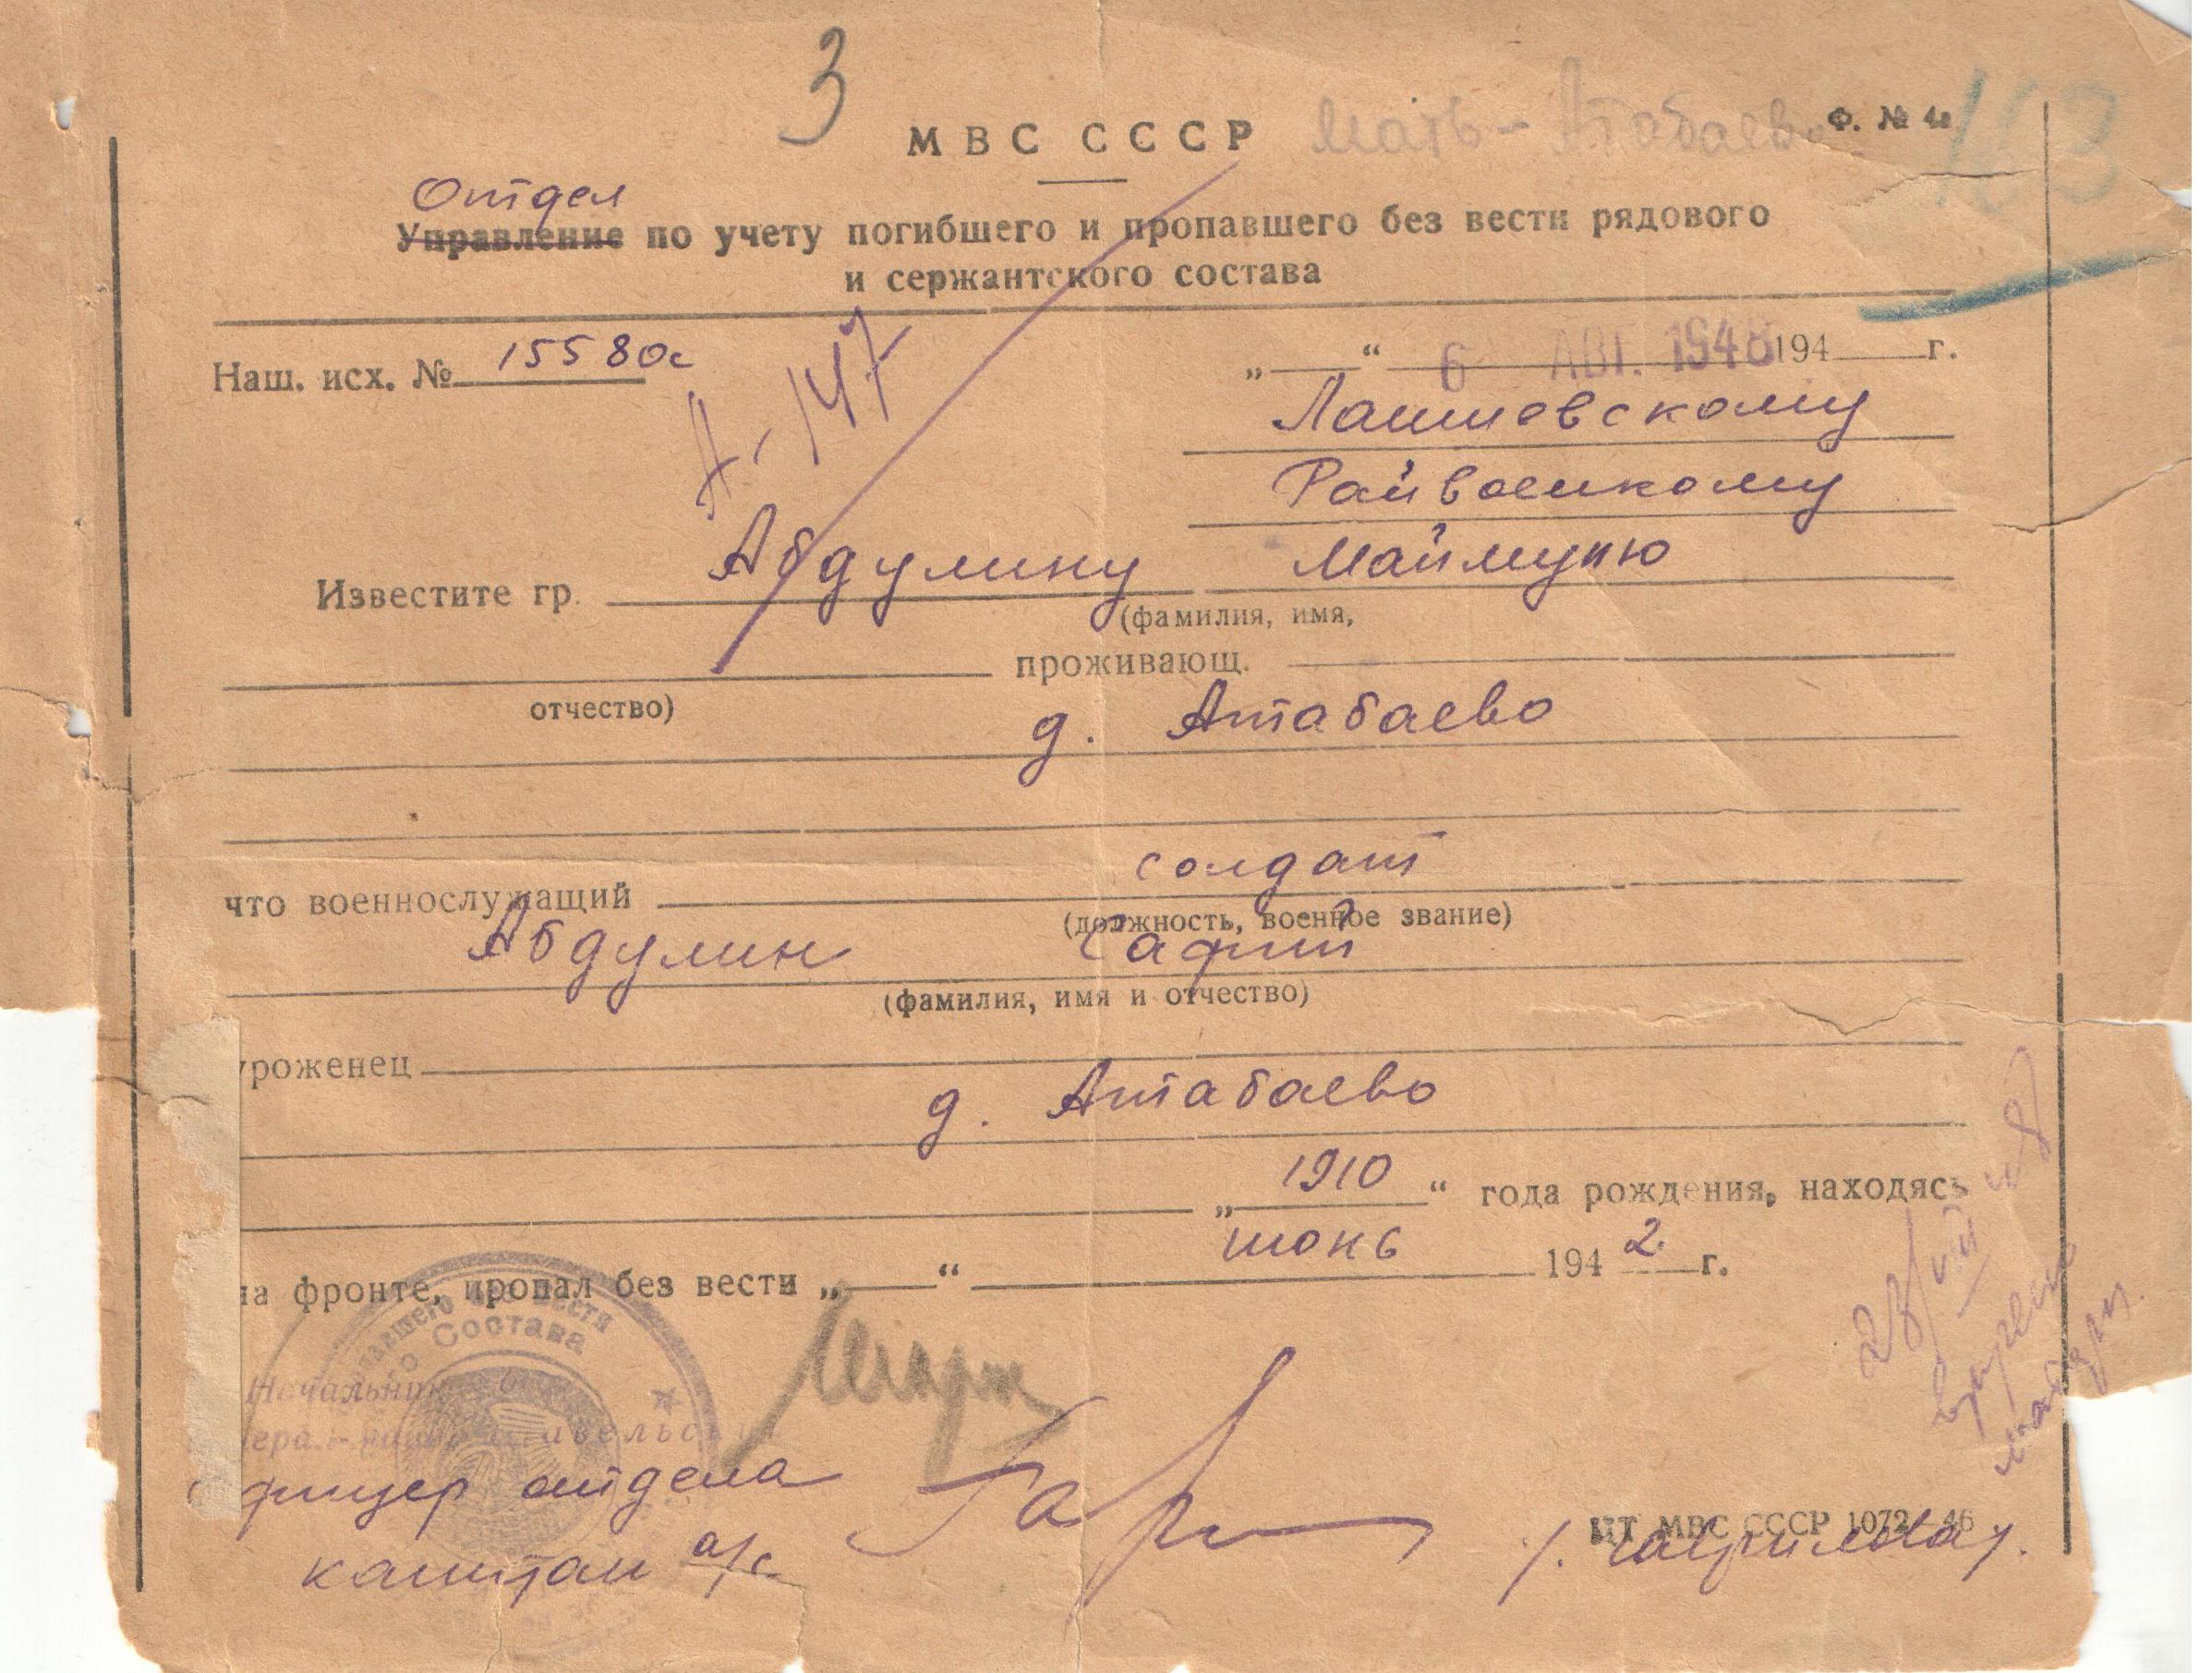 3
МВС СССР
Мать - Атабаево
Ф. № 4а
Отдел
Управление по учету погибшего и пропавшего без вести рядового
и сержантского состава
Наш. исх. № 15580с
„ “ 6 АВГ. 1948 194 г.
А-147
Лаишевскому
Райвоенкому
Известите гр. Абдулину Маймуню
(фамилия, имя,
проживающ.
отчество)
д. Атабаево
солдат
что военнослужащий
(должность, военное звание)
Абдулин Гафий
(фамилия, имя и отчество)
уроженец
д. Атабаево
„1910“ года рождения, находясь
на фронте, пропал без вести „ “ июнь 1942 г.
павшего без вести
Состава
Начальник
офицер отдела
капитан а/с
ЦТ МВС СССР 1072—46
/Гаврилова/.
28/VIII 48
вручено
матери